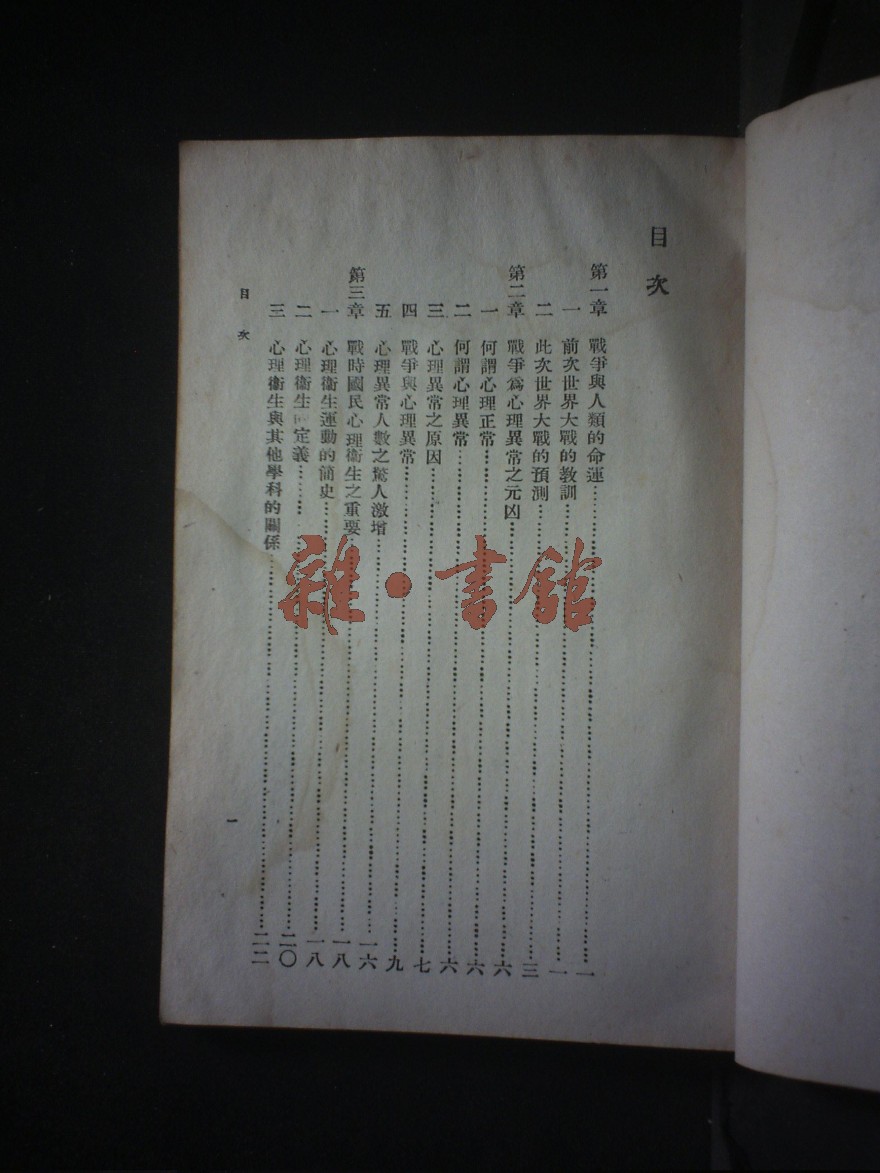 目次
第一章 戰爭與人類的命運……一
一 前次世界大戰的教訓……一
二 此次世界大戰的預測……三
第二章 戰爭爲心理異常之元凶……六
一 何謂心理正常……六
二 何謂心理異常……六
三 心理異常之原因……七
四 戰爭與心理異常……九
五 心理異常人數之驚人激增……一六
第三章 戰時國民心理衞生之重要……一八
一 心理衞生運動的簡史……一八
二 心理衞生定義……二〇
三 心理衞生與其他學科的關係……二二
目次
一
雜·書館